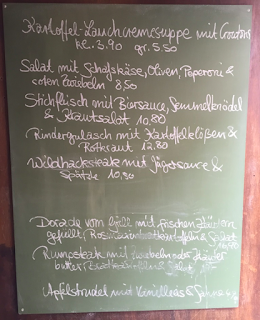 Kartoffel-Lauchcremesuppe mit Croutons
kl. 3.90 gr. 5.50
Salat mit Schafskäse, Oliven, Peperoni &
roten Zwiebeln 8,50
Stichfleisch mit Biersauce, Semmelknödel
& Krautsalat 10,80
Rindergulasch mit Kartoffelklößen &
Rotkraut 12.80
Wildhacksteak mit Jägersauce &
Spätzle 10,90
Dorade vom Grill mit frischen Kräutern
gefüllt, & Salat
Rumpsteak mit
butter,
Apfelstrudel mit Vanilleeis & Sahne